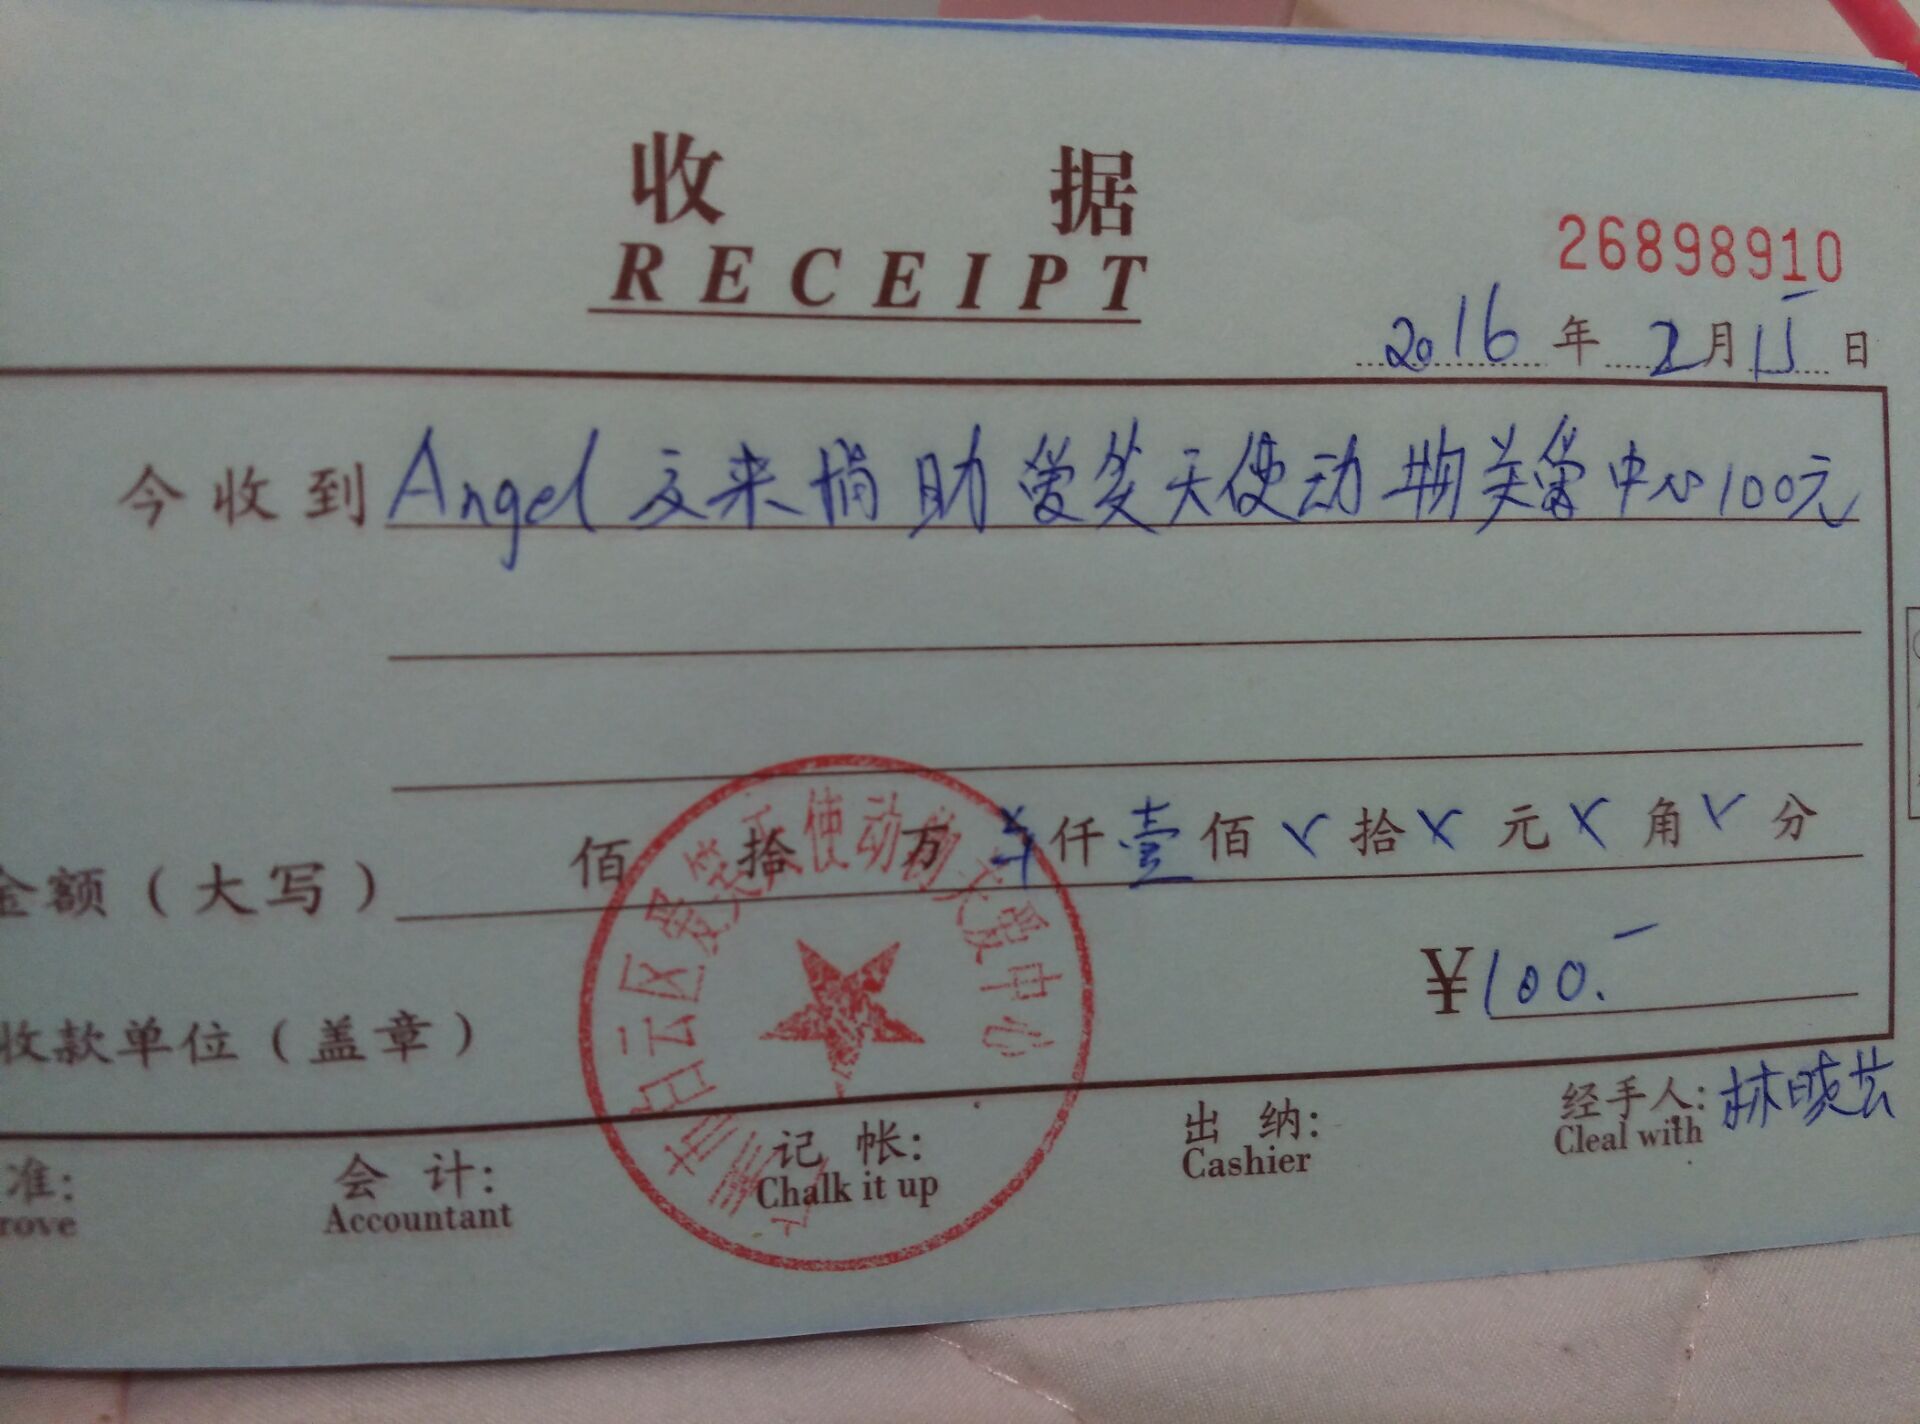 收据
RECEIPT
26898910
2016年2月15日
今收到Angel交来捐助爱笑天使动物关爱中心100元
金额(大写) 佰拾万仟壹佰拾元角分
¥100.-
收款单位(盖章)
白云区爱笑天使动物关爱中心
准:
rove
会计:
Accountant
记帐:
Chalk it up
出纳:
Cashier
经手人:林晓
Cleal with